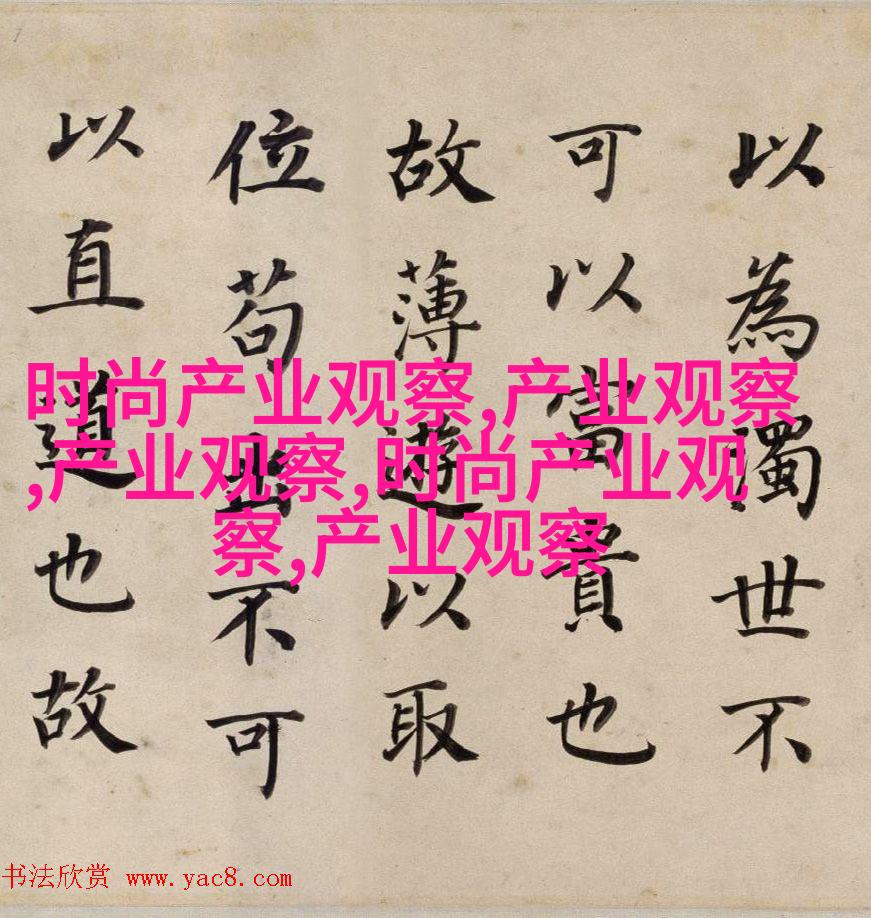 以為濁世不
可以富貴也
故薄遊以取
位苟出不可
以直道也故
时尚产业观察,产业观察
,产业观察,时尚产业观
察,产业观察
书法欣赏 www.yac8.com